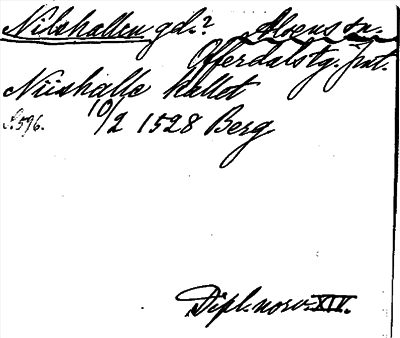 Nilshallen gd.? Alsens sn.
Offerdals tg. Jmt.
Niishalle kallet
S. 596. 10/2 1528 Berg
Dipl. norv. XIV.